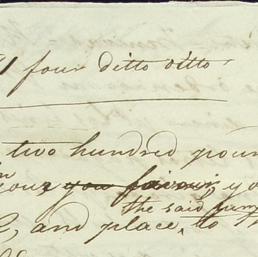 four ditto ditto
two hundred poun
your you favour, yo
the said sum
, and place, to Th